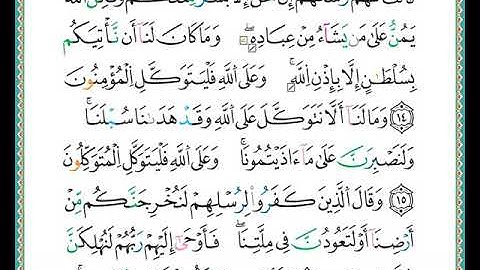 قَالَتْ لَهُمْ رُسُلُهُمْ إِن نَّحْنُ إِلَّا بَشَرٌ مِّثْلُكُمْ وَلَٰكِنَّ ٱللَّهَ
يَمُنُّ عَلَىٰ مَن يَشَآءُ مِنْ عِبَادِهِۦ ۖ وَمَا كَانَ لَنَآ أَن نَّأْتِيَكُم
بِسُلْطَٰنٍ إِلَّا بِإِذْنِ ٱللَّهِ ۚ وَعَلَى ٱللَّهِ فَلْيَتَوَكَّلِ ٱلْمُؤْمِنُونَ
١٤ وَمَا لَنَآ أَلَّا نَتَوَكَّلَ عَلَى ٱللَّهِ وَقَدْ هَدَىٰنَا سُبْلَنَا ۚ
وَلَنَصْبِرَنَّ عَلَىٰ مَآ ءَاذَيْتُمُونَا ۚ وَعَلَى ٱللَّهِ فَلْيَتَوَكَّلِ ٱلْمُتَوَكِّلُونَ
١٥ وَقَالَ ٱلَّذِينَ كَفَرُوا۟ لِرُسْلِهِمْ لَنُخْرِجَنَّكُم مِّنْ
أَرْضِنَآ أَوْ لَتَعُودُنَّ فِى مِلَّتِنَا ۖ فَأَوْحَىٰٓ إِلَيْهِمْ رَبُّهُمْ لَنُهْلِكَنَّ